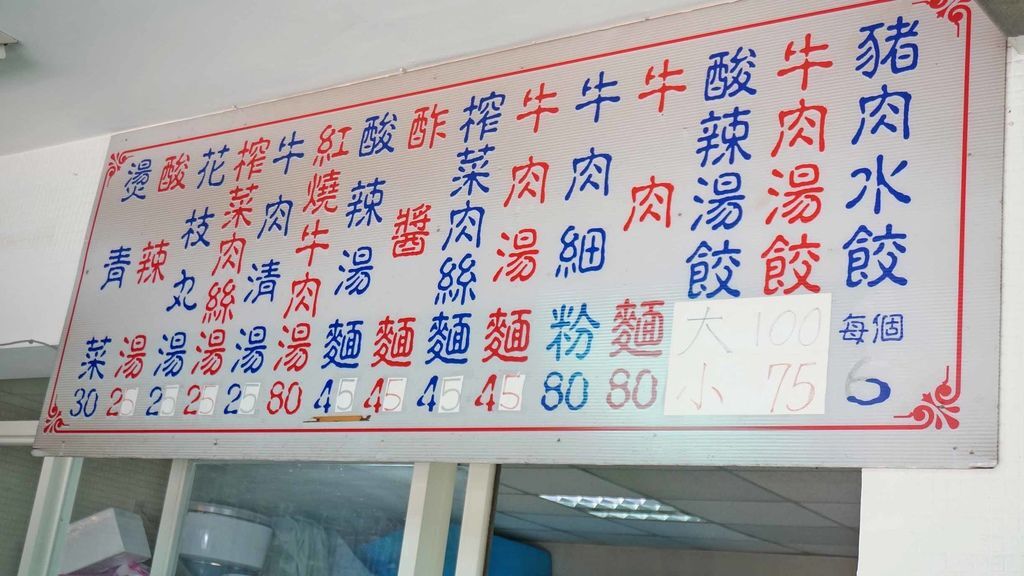 豬肉水餃 每個 5
牛肉湯餃
酸辣湯餃
大 100
小 75
牛肉麵 80
牛肉細粉 80
牛肉湯麵 45
榨菜肉絲麵 45
酢醬麵 45
酸辣湯麵 45
紅燒牛肉湯 80
牛肉清湯 25
榨菜肉絲湯 25
花枝丸湯 25
酸辣湯 25
燙青菜 30